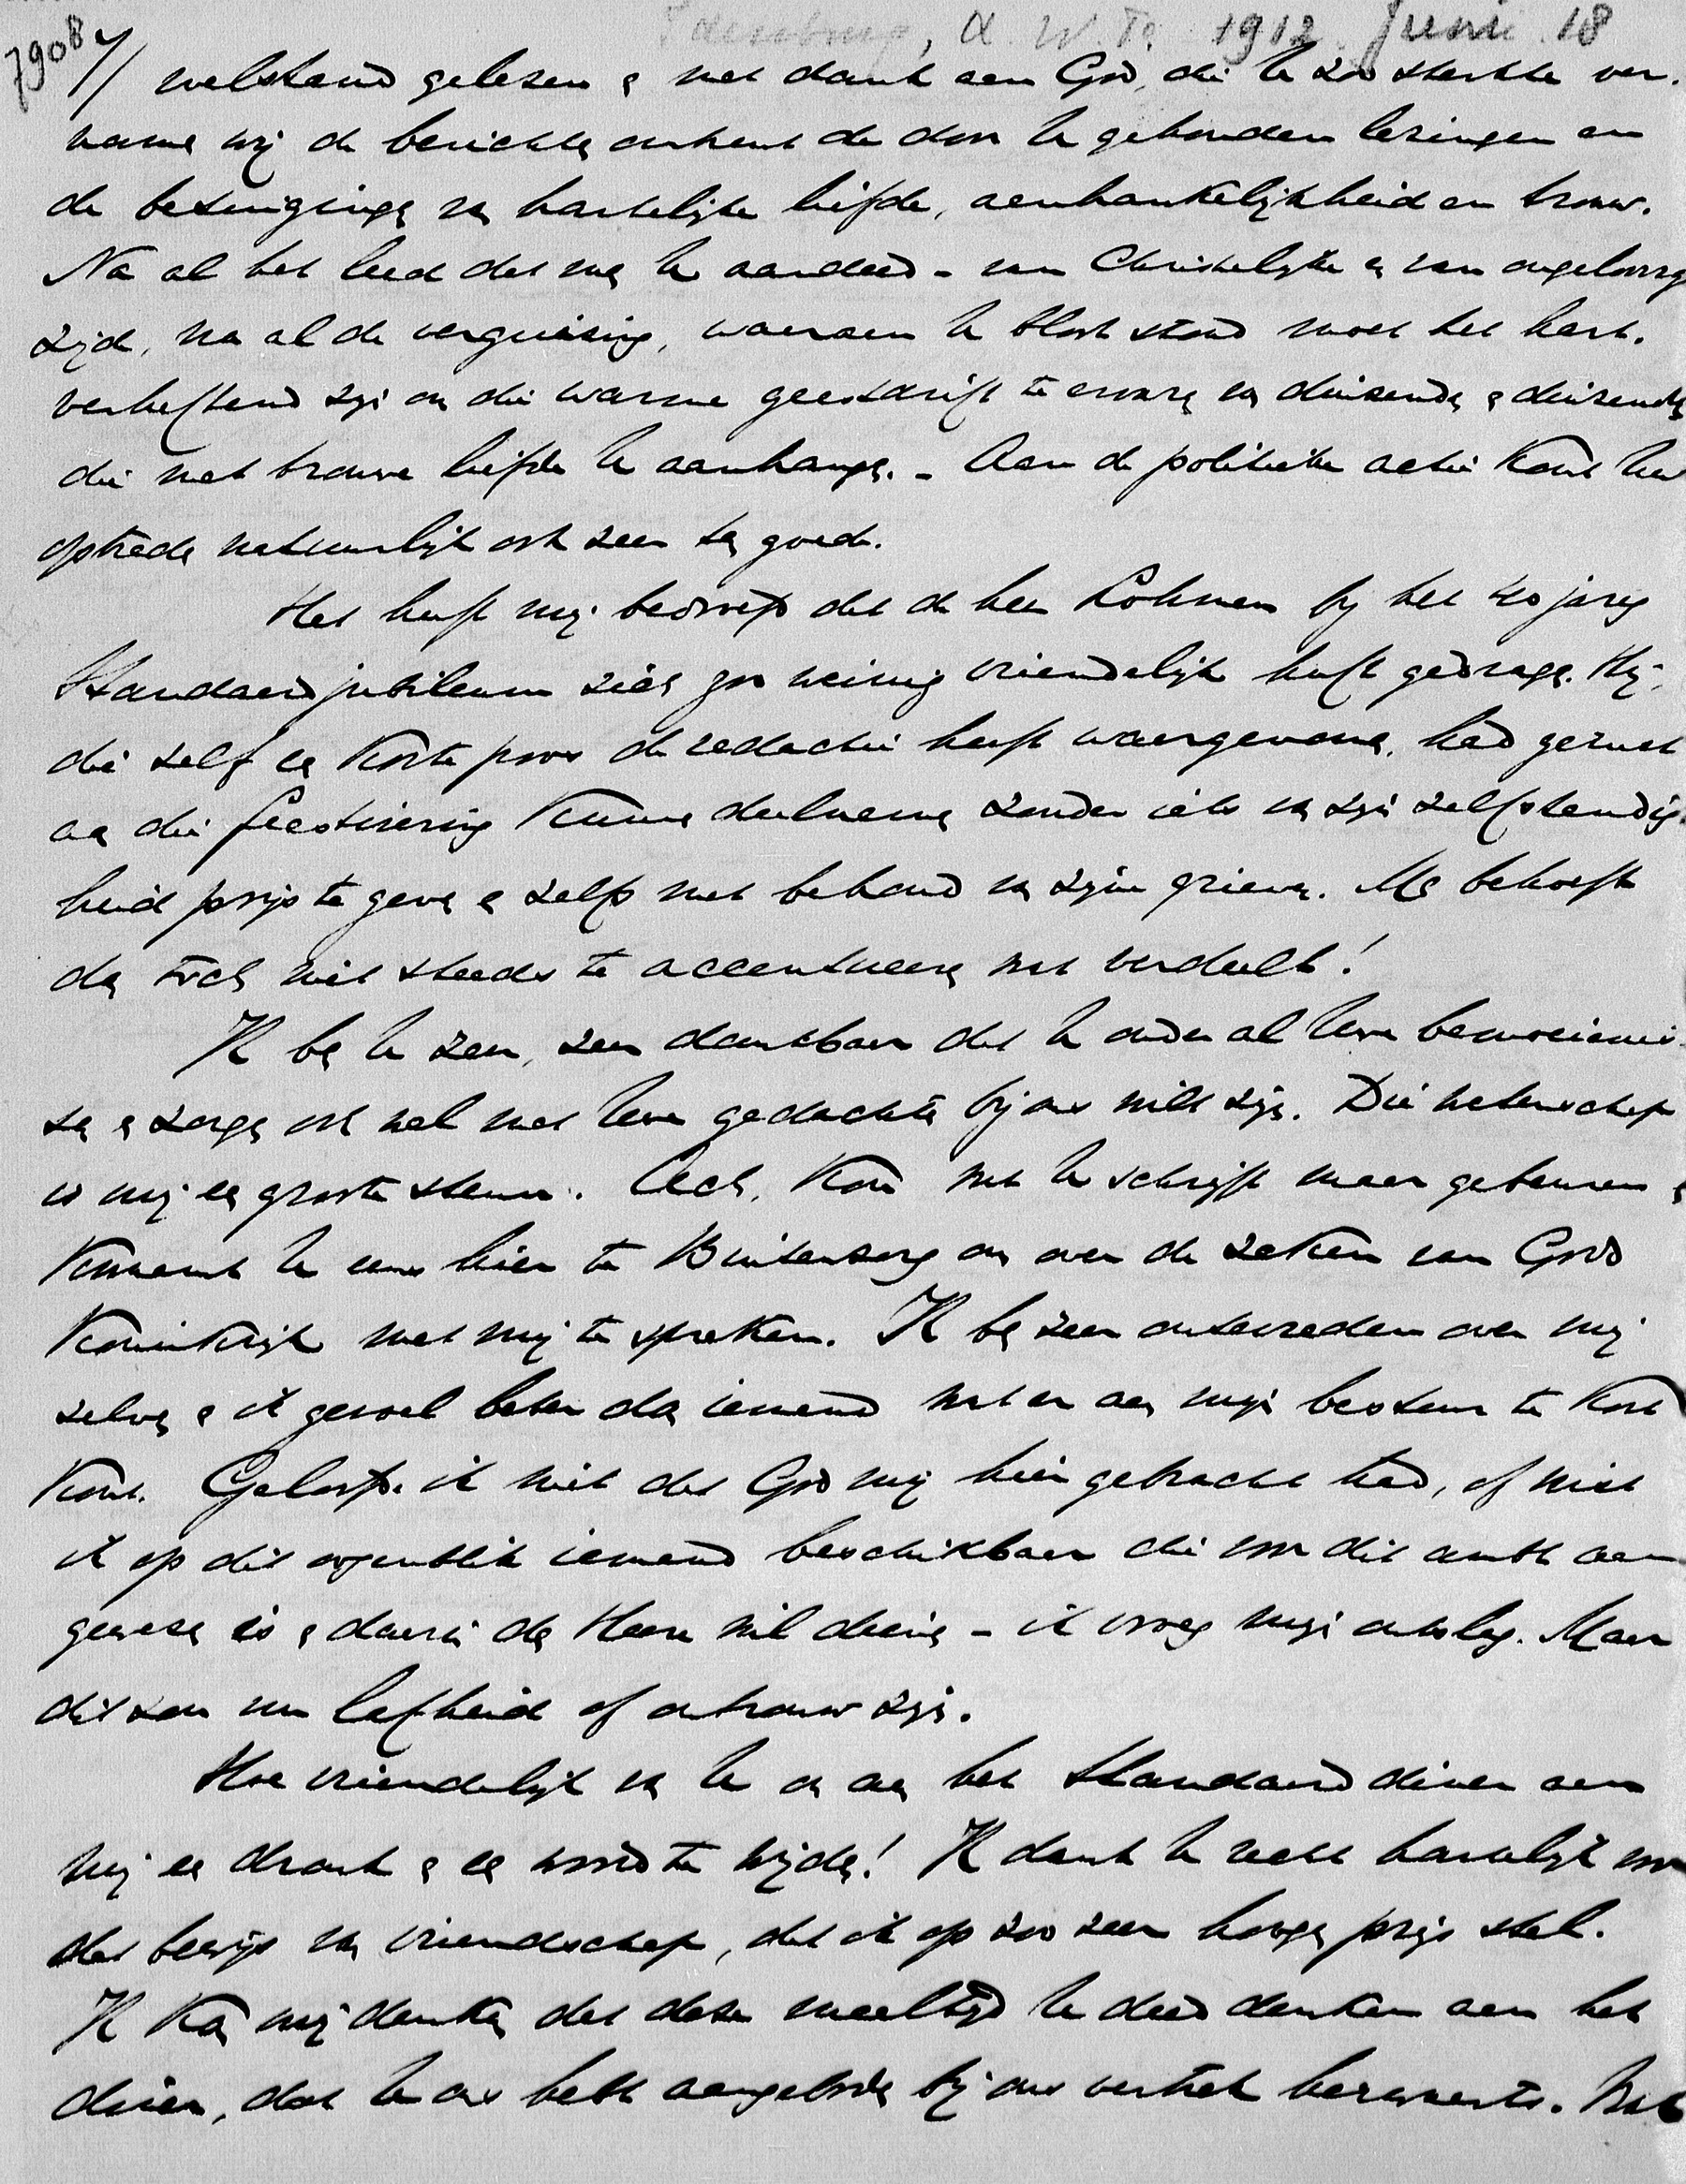 Idenburg, A.W.F. 1912 Juni 18
7908
4/ welstand gelezen en met dank aan God, die U zoo sterkte ver-
namen wij de berichten omtrent de door U gehouden lezingen en
de betuigingen van hartelijke liefde, aanhankelijkheid en trouw.
Na al het leed dat men U aandeed - van Christelijke en van ongeloovige
zijde, na al de verguizing, waaraan U bloot stond moet het hart-
verheffend zijn om die warme geestdrift te ervaren van duizenden en duizenden
die met trouwe liefde U aanhangen. - Aan de politieke actie komt Uw
optreden natuurlijk ook zeer ten goede.
Het heeft mij bedroefd dat de heer Lohman bij het 40 jarig
Standaardjubileum zich zoo weinig vriendelijk heeft gedragen. Hij,
die zelf een korte poos de redactie heeft waargenomen, had gerust
aan die feestviering kunnen deelnemen zonder iets van zijn zelfstandig-
heid prijs te geven en zelfs met behoud van zijn grieven. Men behoeft
dan toch niet steeds te accentueeren wat verdeelt!
Ik ben U zeer, zeer dankbaar dat U onder al Uwe bemoeienis-
sen en zorgen ook wel met Uwe gedachten bij ons wilt zijn. Die wetenschap
is mij een groote steun. Ach, kon wat U schrijft maar gebeuren en
kwaamt U eens hier te Buitenzorg om over de zaken van Gods
Koninkrijk met mij te spreken. Ik ben zeer ontevreden over mij
zelven en ik gevoel beter dan iemand wat er aan mijn bestuur te kort
komt. Geloofde ik niet dat God mij hier gebracht had, of wist
ik op dit oogenblik iemand beschikbaar die voor dit ambt aan-
gewezen is en daarin den Heere wil dienen - ik vroeg mijn ontslag. Maar
dit zou nu lafheid of ontrouw zijn.
Hoe vriendelijk van U om aan het Standaard diner aan
mij een dronk en een woord te wijden! Ik dank U recht hartelijk voor
dat bewijs van vriendschap, dat ik op zoo zeer hoogen prijs stel.
Ik kan mij denken dat deze maaltijd U deed denken aan het
diner, dat U ons hebt aangeboden bij ons vertrek herwaarts. Wat